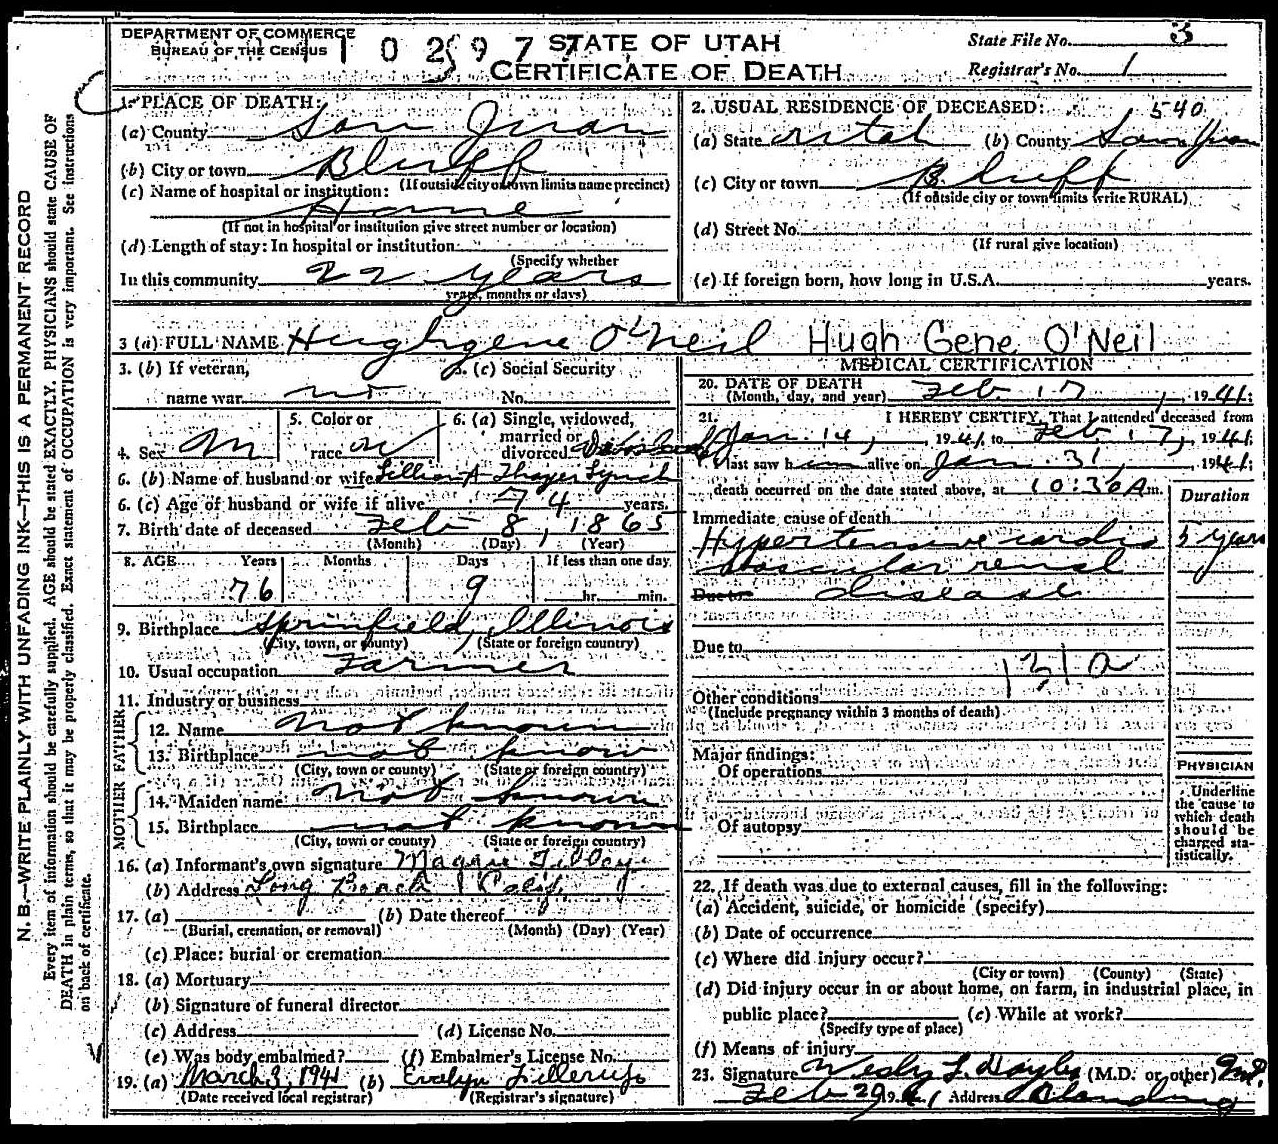 DEPARTMENT OF COMMERCE
BUREAU OF THE CENSUS
1 1 0 2 9 7 7
STATE OF UTAH
CERTIFICATE OF DEATH
State File No. 3
Registrar's No. 1
1. PLACE OF DEATH:
(a) County San Juan
(b) City or town Bluff
(If outside city or town limits name precinct)
(c) Name of hospital or institution:
Home
(If not in hospital or institution give street number or location)
(d) Length of stay: In hospital or institution
(Specify whether
In this community 22 years
years, months or days)
2. USUAL RESIDENCE OF DECEASED: 540
(a) State Utah (b) County San Juan
(c) City or town Bluff
(If outside city or town limits write RURAL)
(d) Street No.
(If rural give location)
(e) If foreign born, how long in U.S.A. years.
3 (a) FULL NAME Hughgene O'Neil Hugh Gene O'Neil
3. (b) If veteran,
name war no
3. (c) Social Security
No.
4. Sex M
5. Color or
race W
6. (a) Single, widowed,
married or
divorced
6. (b) Name of husband or wife Lillian A Thayer Lynch
6. (c) Age of husband or wife if alive 74 years.
7. Birth date of deceased Feb 8, 1865
(Month) (Day) (Year)
8. AGE Years Months Days If less than one day
76 9 hr. min.
9. Birthplace Springfield, Illinois
(City, town, or county) (State or foreign country)
10. Usual occupation Farmer
11. Industry or business
FATHER
12. Name not known
13. Birthplace not know
(City, town or county) (State or foreign country)
MOTHER
14. Maiden name not known
15. Birthplace not known
(City, town or county) (State or foreign country)
16. (a) Informant's own signature Maggie
(b) Address Long Beach Calif.
17. (a) (b) Date thereof
(Burial, cremation, or removal) (Month) (Day) (Year)
(c) Place: burial or cremation
18. (a) Mortuary
(b) Signature of funeral director
(c) Address (d) License No.
(e) Was body embalmed? (f) Embalmer's License No.
19. (a) March 3, 1941 (b) Evelyn Fillerup
(Date received local registrar) (Registrar's signature)
MEDICAL CERTIFICATION
20. DATE OF DEATH
(Month, day, and year) Feb. 17, 1941.
21. I HEREBY CERTIFY, That I attended deceased from
Jan. 14, 1941 to Feb. 17, 1941
I last saw him alive on Jan. 31, 1941;
death occurred on the date stated above, at 10:30 A m.
Duration
Immediate cause of death
Hypertensive cardio 5 years
vascular renal
Due to disease
Due to
131a
Other conditions
(Include pregnancy within 3 months of death)
Major findings:
Of operations
Of autopsy
PHYSICIAN
Underline
the cause to
which death
should be
charged sta-
tistically.
22. If death was due to external causes, fill in the following:
(a) Accident, suicide, or homicide (specify)
(b) Date of occurrence
(c) Where did injury occur?
(City or town) (County) (State)
(d) Did injury occur in or about home, on farm, in industrial place, in
public place? (e) While at work?
(Specify type of place)
(f) Means of injury
23. Signature (M.D. or other) M.D.
Feb 29 1941 Address Blanding
N. B.—WRITE PLAINLY WITH UNFADING INK—THIS IS A PERMANENT RECORD
Every item of information should be carefully supplied. AGE should be stated EXACTLY. PHYSICIANS should state CAUSE OF
DEATH in plain terms, so that it may be properly classified. Exact statement of OCCUPATION is very important. See instructions
on back of certificate.